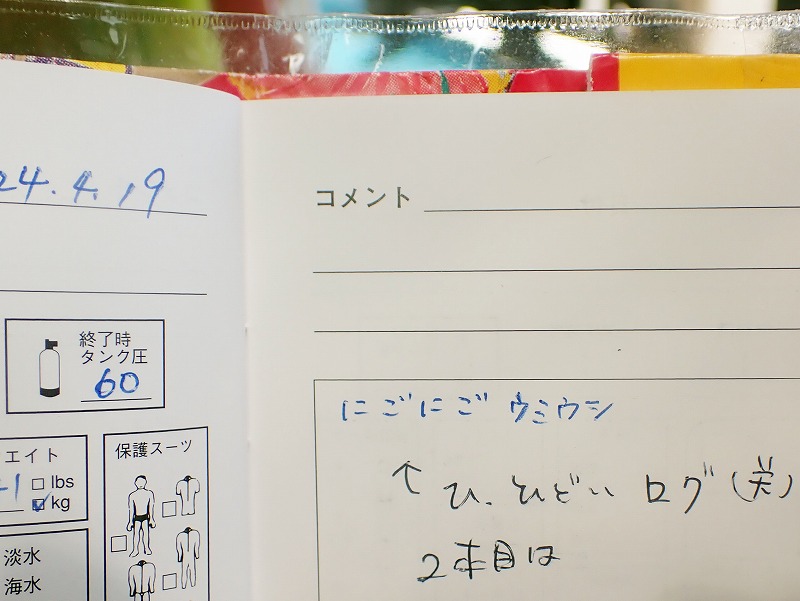 24.4.19
終了時
タンク圧
60
エイト
lbs
kg
保護スーツ
淡水
海水
コメント
にごにごウミウシ
↑ひ、ひどいログ(笑)
2本目は